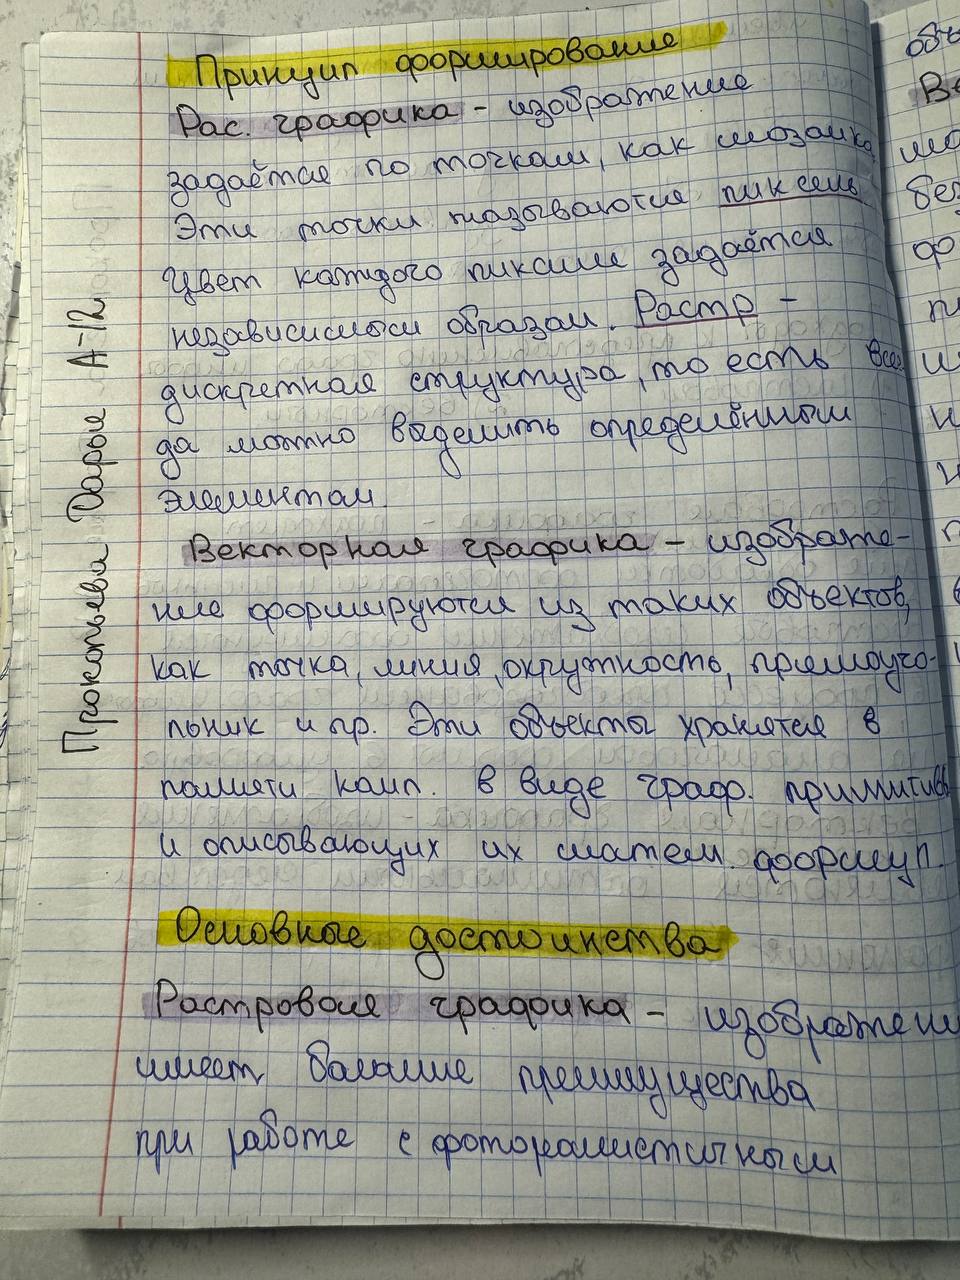 Принцип формирование
Рас. графика - изображение
задаётся по точкам, как мозаика.
Эти точки называются пиксель
Цвет каждого пикселе задаётся
независимым образом. Растр -
дискретная структура, то есть все
да можно выделить определённым
элементам.
Векторная графика - изображе-
ние формируются из таких объектов,
как точка, линия, окружность, прямоуго-
льник и пр. Эти объекты хранятся в
памяти комп. в виде граф. примитив
и описывающих их матем. формул.
Основные достоинства
Растровая графика - изображени
имеет большие преимущества
при работе с фотореалистичным
Прокопьева Дарья А-12
объ
Ве
мо
без